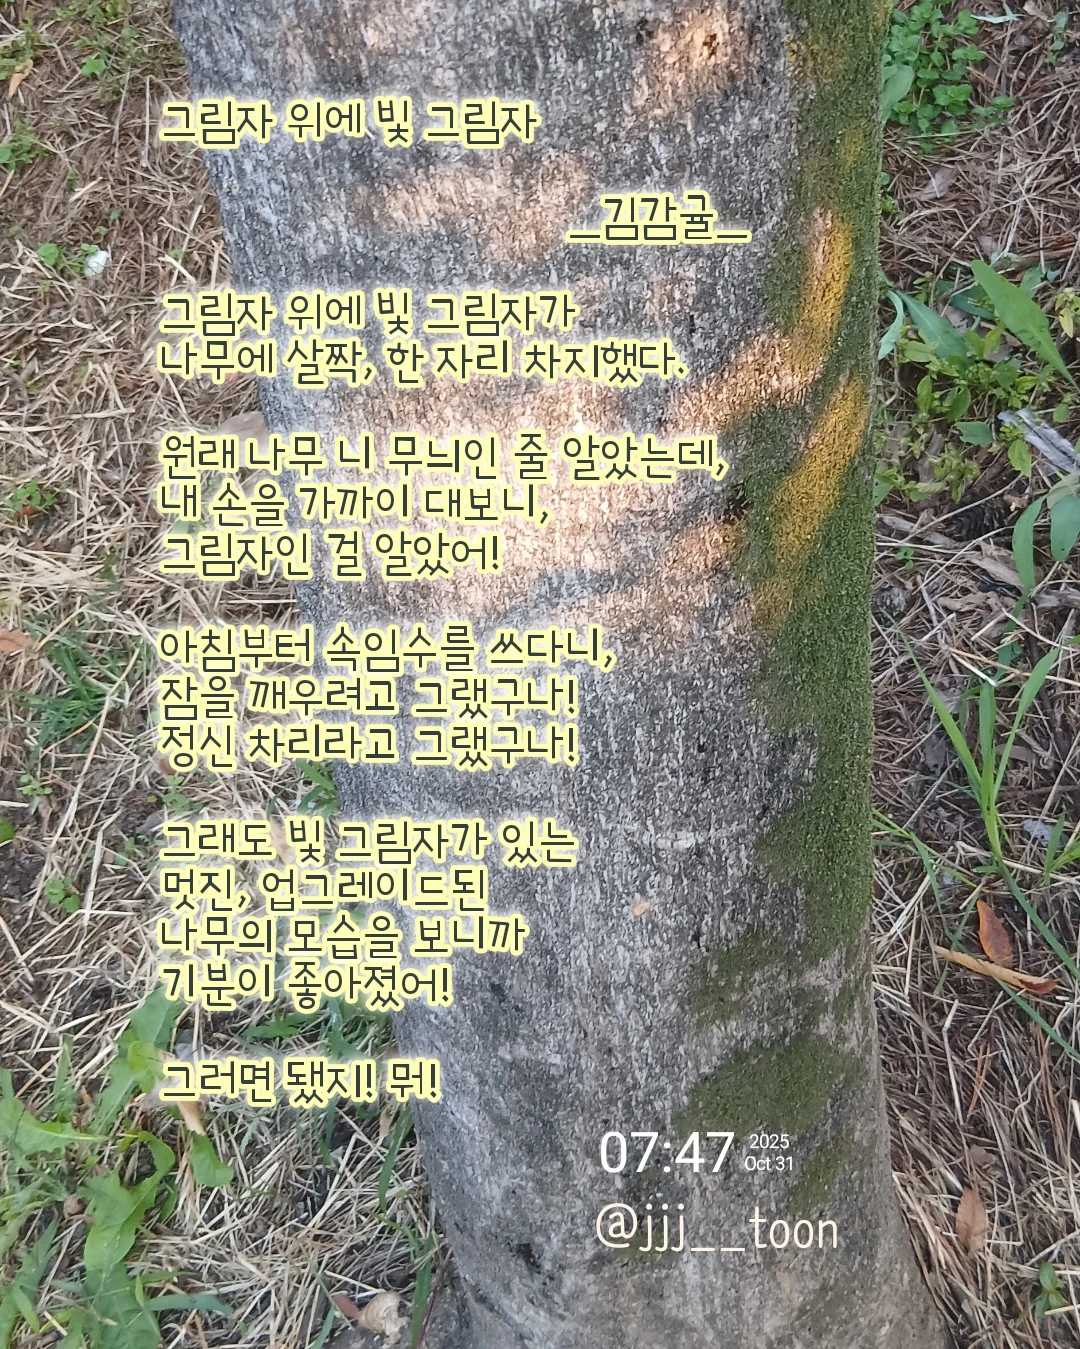 그림자 위에 빛 그림자
_김감귤_
그림자 위에 빛 그림자가
나무에 살짝, 한 자리 차지했다.
원래 나무 니 무늬인 줄 알았는데,
내 손을 가까이 대보니,
그림자인 걸 알았어!
아침부터 속임수를 쓰다니,
잠을 깨우려고 그랬구나!
정신 차리라고 그랬구나!
그래도 빛 그림자가 있는
멋진, 업그레이드된
나무의 모습을 보니까
기분이 좋아졌어!
그러면 됐지! 뭐!
07:47 2025 Oct 31
@jjj__toon